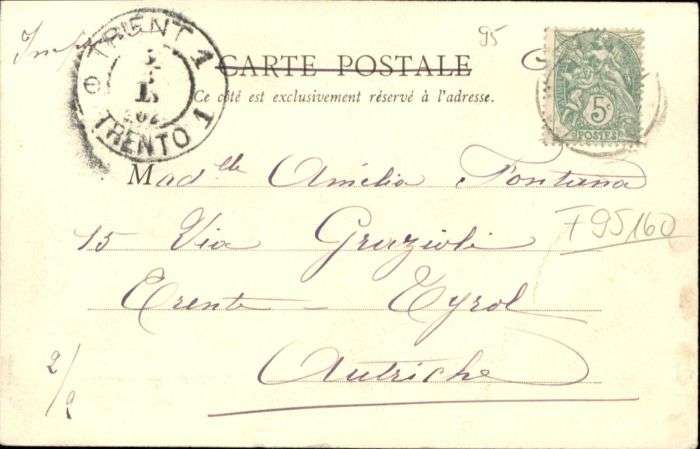 95
TRIENT 1
TRENTO 1
CARTE POSTALE
Ce côté est exclusivement réservé à l'adresse.
5c
POSTES
Madelle Amélia Fontana
15 Via Grazioli
F95160
Trente - Tyrol
Autriche
2/